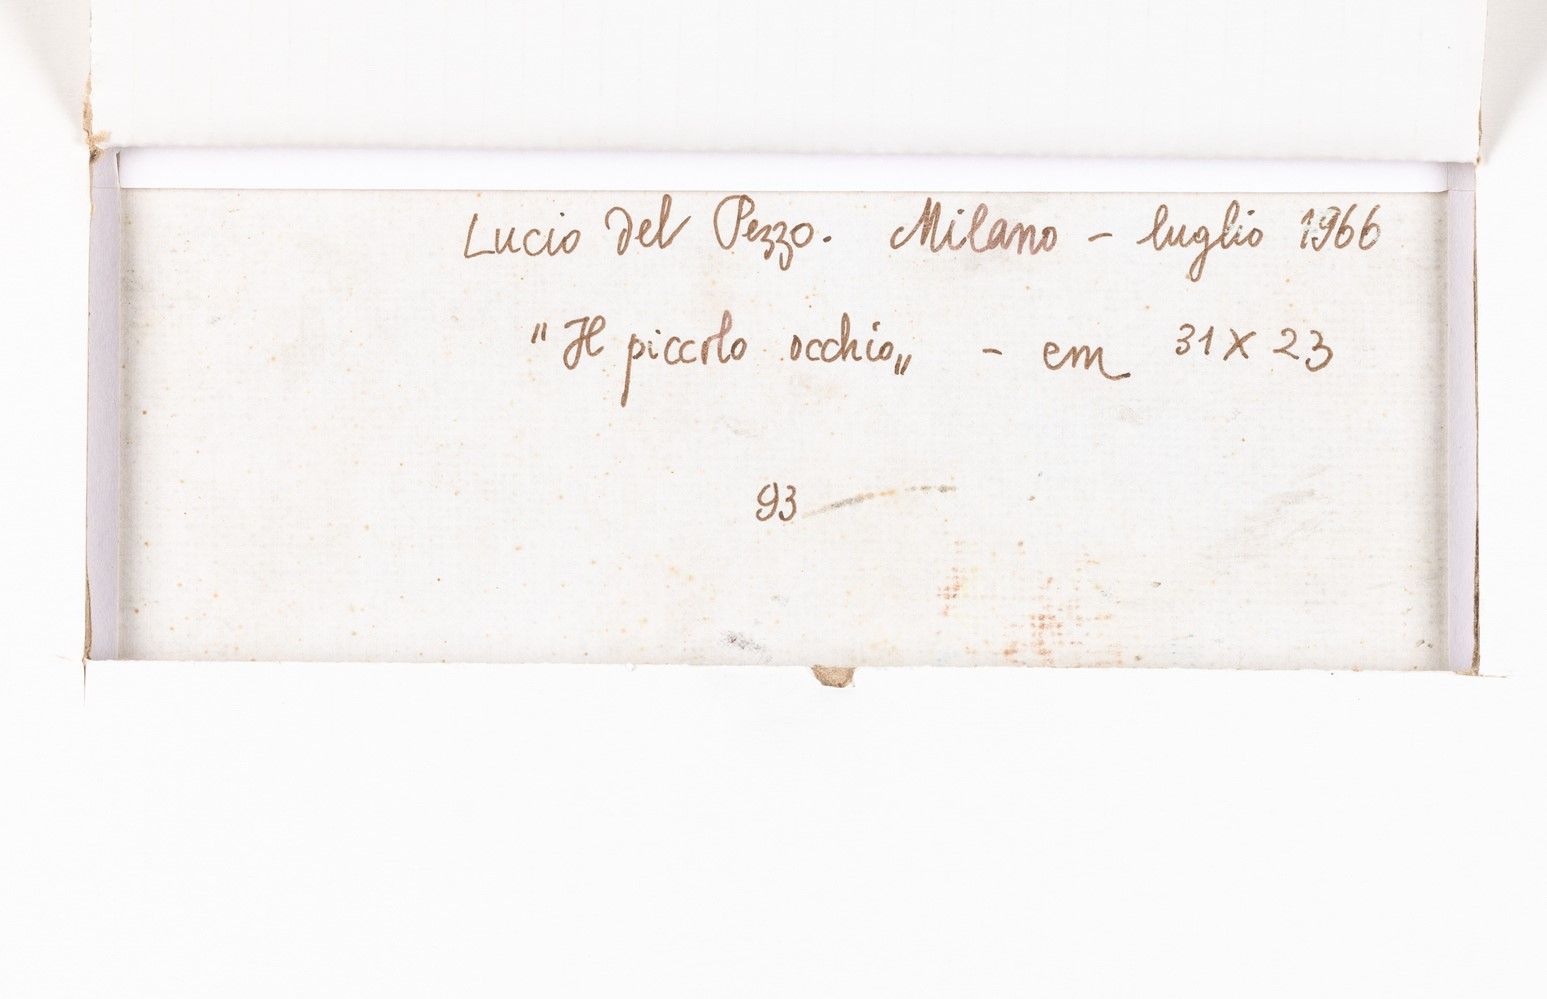 Lucio Del Pezzo. Milano - luglio 1966
"Il piccolo occhio„ - cm 31 X 23
93